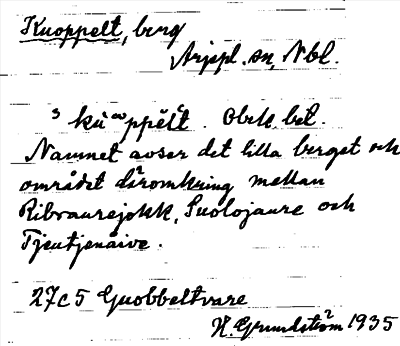 Kuoppelt, berg
Arjepl. sn, Nbl.
Obek. bet.
Namnet avser det lilla berget och
området däromkring mellan
Ribraurejokk, Suolojaure och
Tjeutjenäive.
27c5 Guobbeltvare
H. Grundström 1935